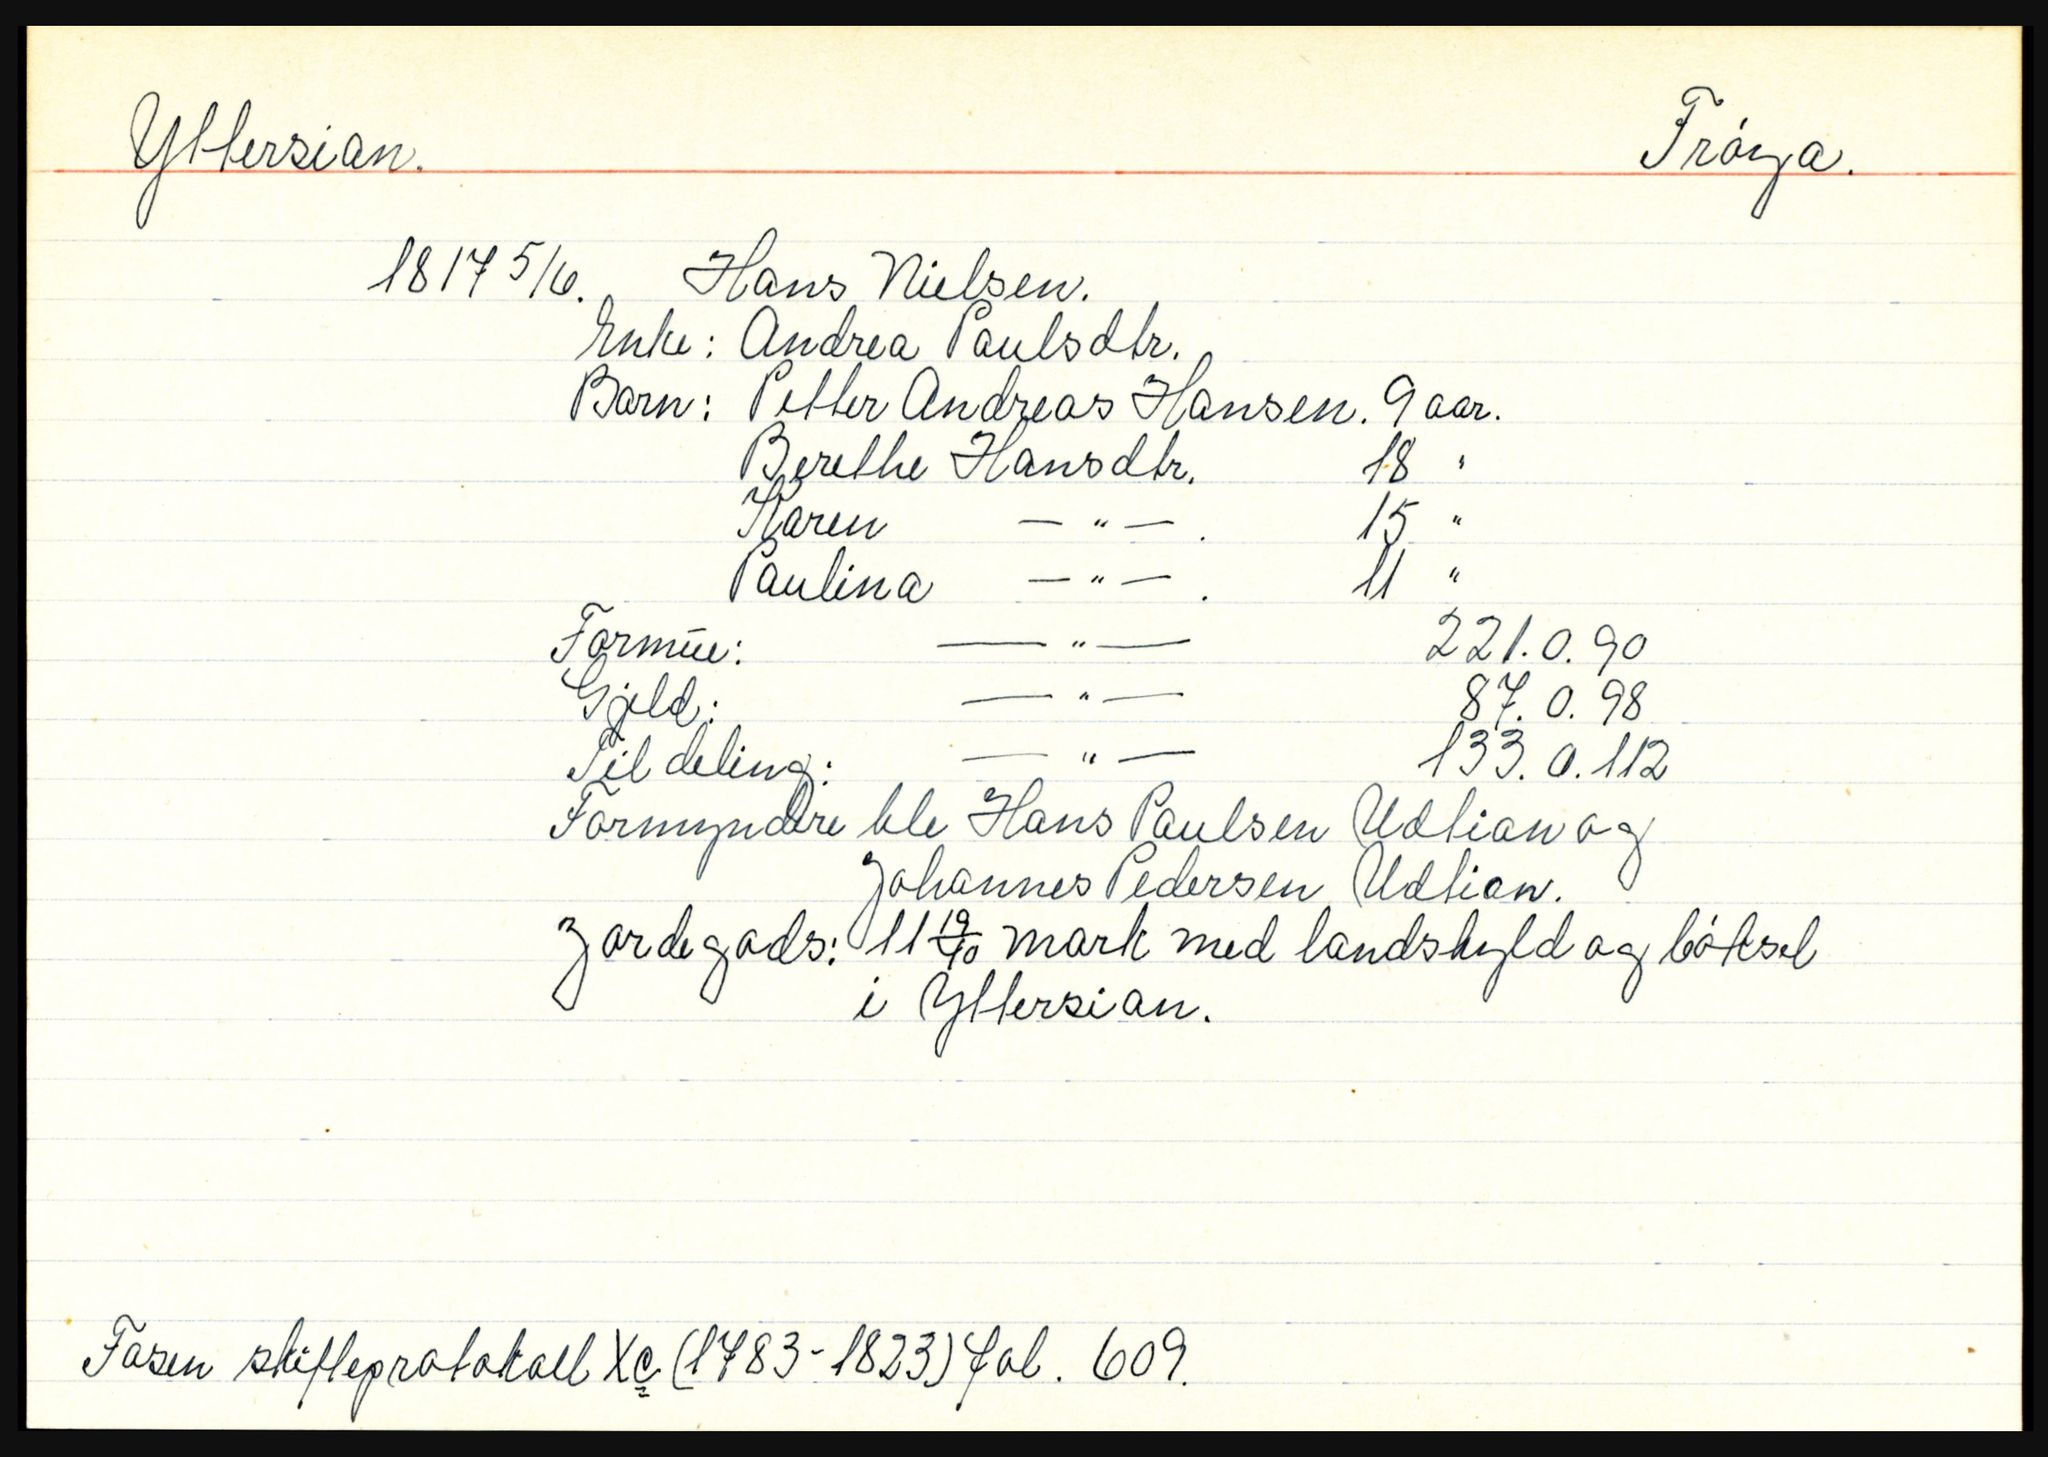 Yttersian. Fröya.
1817 5/6. Hans Nielsen.
Enke: Andrea Paulsdtr.
Barn: Petter Andreas Hansen. 9 aar.
Berethe Hansdtr. 18 "
Karen — " — . 15 "
Paulina — " — . 11 "
Formue: — " — 221. 0. 90
Gjeld: — " — 87. 0. 98
Til deling: — " — 133. 0. 112
Formyndere ble Hans Paulsen Udtian og
Johannes Pedersen Udtian.
Jordegods: 11 19/40 mark med landskyld og böksel
i Yttersian.
Fosen skifteprotokoll Xc (1783-1823) fol. 609.